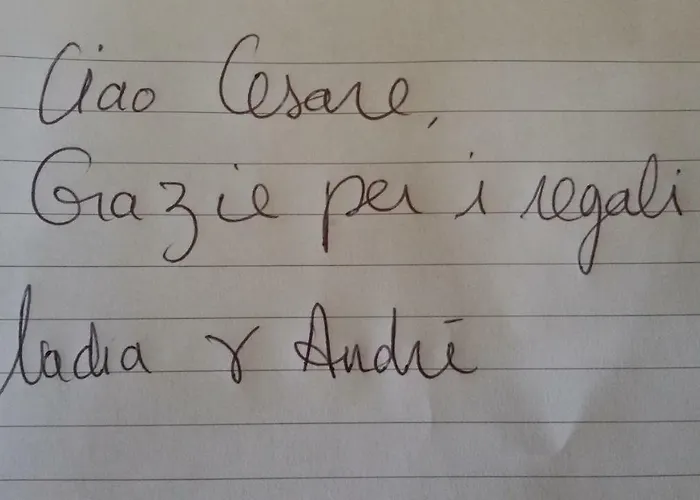 Ciao Cesare,
Grazie per i regali
& André